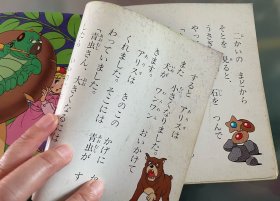 二かいの まどから
そとを 見ると、
うさぎ
石を つんで
やっ
すると アリスは
また 小さくなりました。
犬が ワンワン おいかけて
きます。
アリスは きのこの かげに か
くれました。そこには 青虫が す
わっていました。
「青虫さん、大きくなるこ